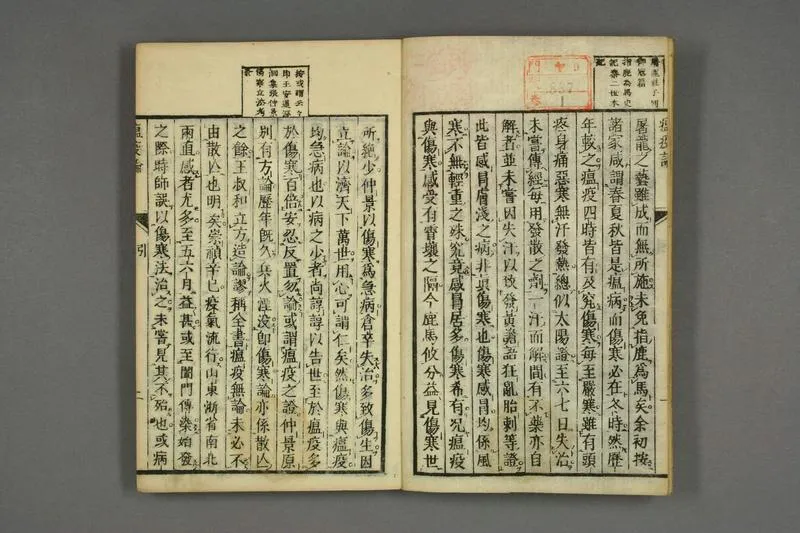 瘟疫論
屠龍之藝雖成而無所施未免指鹿為馬矣余初按
諸家咸謂春夏秋皆是瘟病而傷寒必在冬時然歷
年較之瘟疫四時皆有及究傷寒每至嚴寒雖有頭
疼身痛惡寒無汗發熱總似太陽證至六七日失治
未嘗傳經每用發散之劑一汗而解間有不藥亦自
解者並未嘗因失汗以致發黃譫語狂亂胎刺等證
此皆感冒膚淺之病非真傷寒也傷寒感冒均係風
寒不無輕重之殊究竟感冒居多傷寒希有況瘟疫
與傷寒感受有霄壤之隔今鹿馬攸分益見傷寒世
所絶少仲景以傷寒為急病倉卒失治多致傷生因
立論以濟天下萬世用心可謂仁矣然傷寒與瘟疫
均急病也以病之少者尚諄諄以告世至於瘟疫多
於傷寒百倍安忍反置勿論或謂瘟疫之證仲景原
別有方論歷年既久兵火湮没即傷寒論亦係散亾
之餘王叔和立方造論謬稱全書瘟疫無論未必不
由散亾也明矣崇禎辛巳疫氣流行山東浙省南北
兩直感者尤多至五六月益甚或至闔門傳染始發
之際時師誤以傷寒法治之未嘗見其不殆也或病
瘟疫論
引